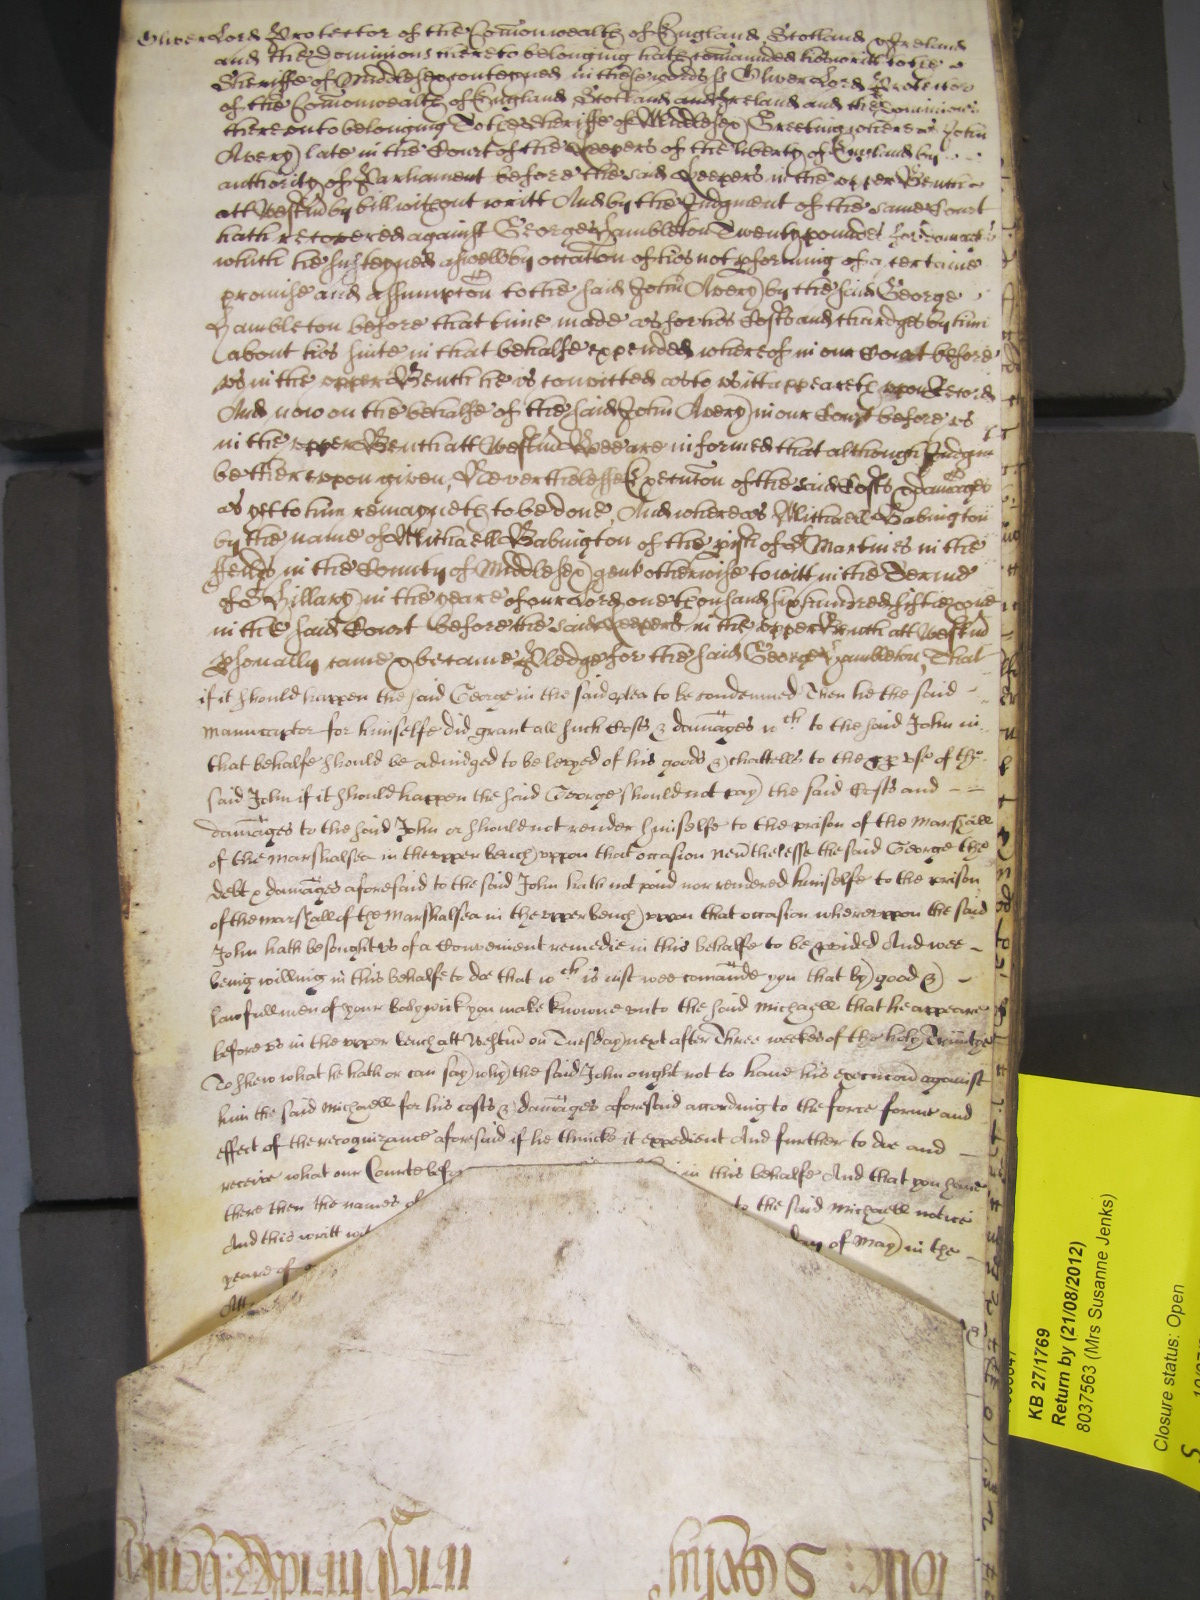 Oliver Lord Protector of the Comonwealth of England Scotland & Ireland
and the Dominions thereto belonging hath comaunded his writt to the
Sheriffe of Middlesex conteyned in these words ss Oliver Lord Protector
of the Comonwealth of England Scotland and Ireland and the Dominions
thereunto belonging To the Sheriffe of Middlesex Greeting whereas John
Avery late in the Court of the Keepers of the liberty of England by
authority of Parliament before the said Keepers in the upper Bench
att Westm by bill without writt And by the Judgment of the same Court
hath recovered against George Hambleton Twenty pounds for damages
which he susteyned aswell by occation of his not pforming of a certaine
promise and assumpton to the said John Avery by the said George
Hambleton before that time made as for his Costs and chardges by him
about his suite in that behalfe expended whereof in our Court before
us in the upper Bench he is convicted as to us itt appeareth upon Record
And now on the behalfe of the said John Avery in our Court before us
in the upper Bench att Westm Wee are informed that although Judgmt
be thereupon given, Neverthelesse Executon of the said Costs & damages
as yet to him remayneth to be done, And whereas Michaell Babington
by the name of Michaell Babington of the pish of St Martines in the
ffeilds in the County of Middlesex gent otherwise to witt in the Terme
of St Hillary in the yeare of our Lord one thousand six hundred fiftie one
in the said Court before the said Keepers in the upper Bench att Westm
psonally came & became Pledge for the said George Hambleton, That
if it should happen the said George in the said plea to be condemned Then he the said
Manucaptor for himselfe did grant all such Costs & damages wch to the said John in
that behalfe should be adiudged to be levyed of his goods & chattells to the use of the
said John if it should happen the said George should not pay the said Costs and
damages to the said John or should not render himselfe to the prison of the Marshall
of the Marshalsea in the upper bench uppon that occasion Nevthelesse the said George the
debt & damages aforesaid to the said John hath not paid nor rendered himselfe to the prison
of the Marshall of the Marshalsea in the upper bench uppon that occasion whereuppon the said
John hath besought us of a Convenient remedie in this behalfe to be pvided And wee
being willing in this behalfe to doe that wch is iust wee comaunde you that by good &
lawfull men of your Baliywick you make knowne unto the said Michaell that he appeare
before us in the upper bench att Westm on Tuesday next after Three weekes of the holy Trinitye
To shew what he hath or can say why the said John ought not to have his execucon against
him the said Michaell for his costs & damages aforesaid according to the force forme and
effect of the recognizance aforesaid if he thincks it expedient And further to doe and
receive what our Court bef in this behalfe And that you have
there then the names of to the said Michaell notice
And this writt wit day of May in the
yeare of
Att
KB 27/1769
Return by (21/08/2012)
8037563 (Mrs Susanne Jenks)
Closure status: Open